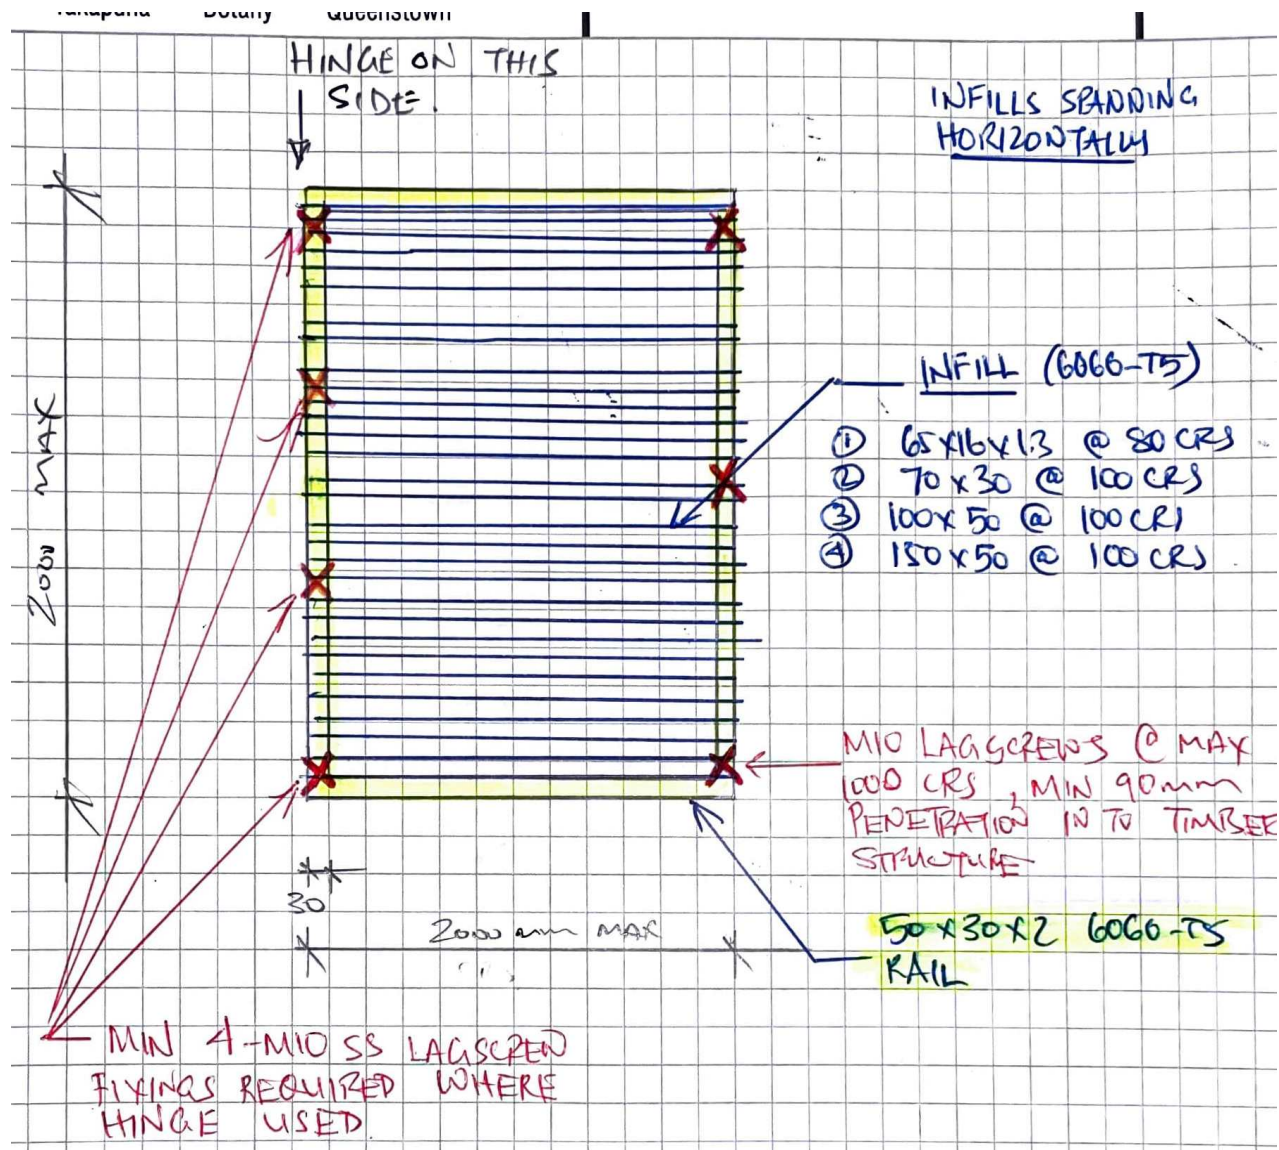 Takapuna Botany Queenstown
HINGE ON THIS
SIDE.
INFILLS SPANNING
HORIZONTALLY
2000 MAX
INFILL (6060-T5)
① 65x16x1.3 @ 80 CRS
② 70x30 @ 100 CRS
③ 100x50 @ 100 CRS
④ 150x50 @ 100 CRS
M10 LAGSCREWS @ MAX
1000 CRS, MIN 90mm
PENETRATION IN TO TIMBER
STRUCTURE
30
2000 mm MAX
50x30x2 6060-T5
RAIL
MIN 4-M10 SS LAGSCREW
FIXINGS REQUIRED WHERE
HINGE USED